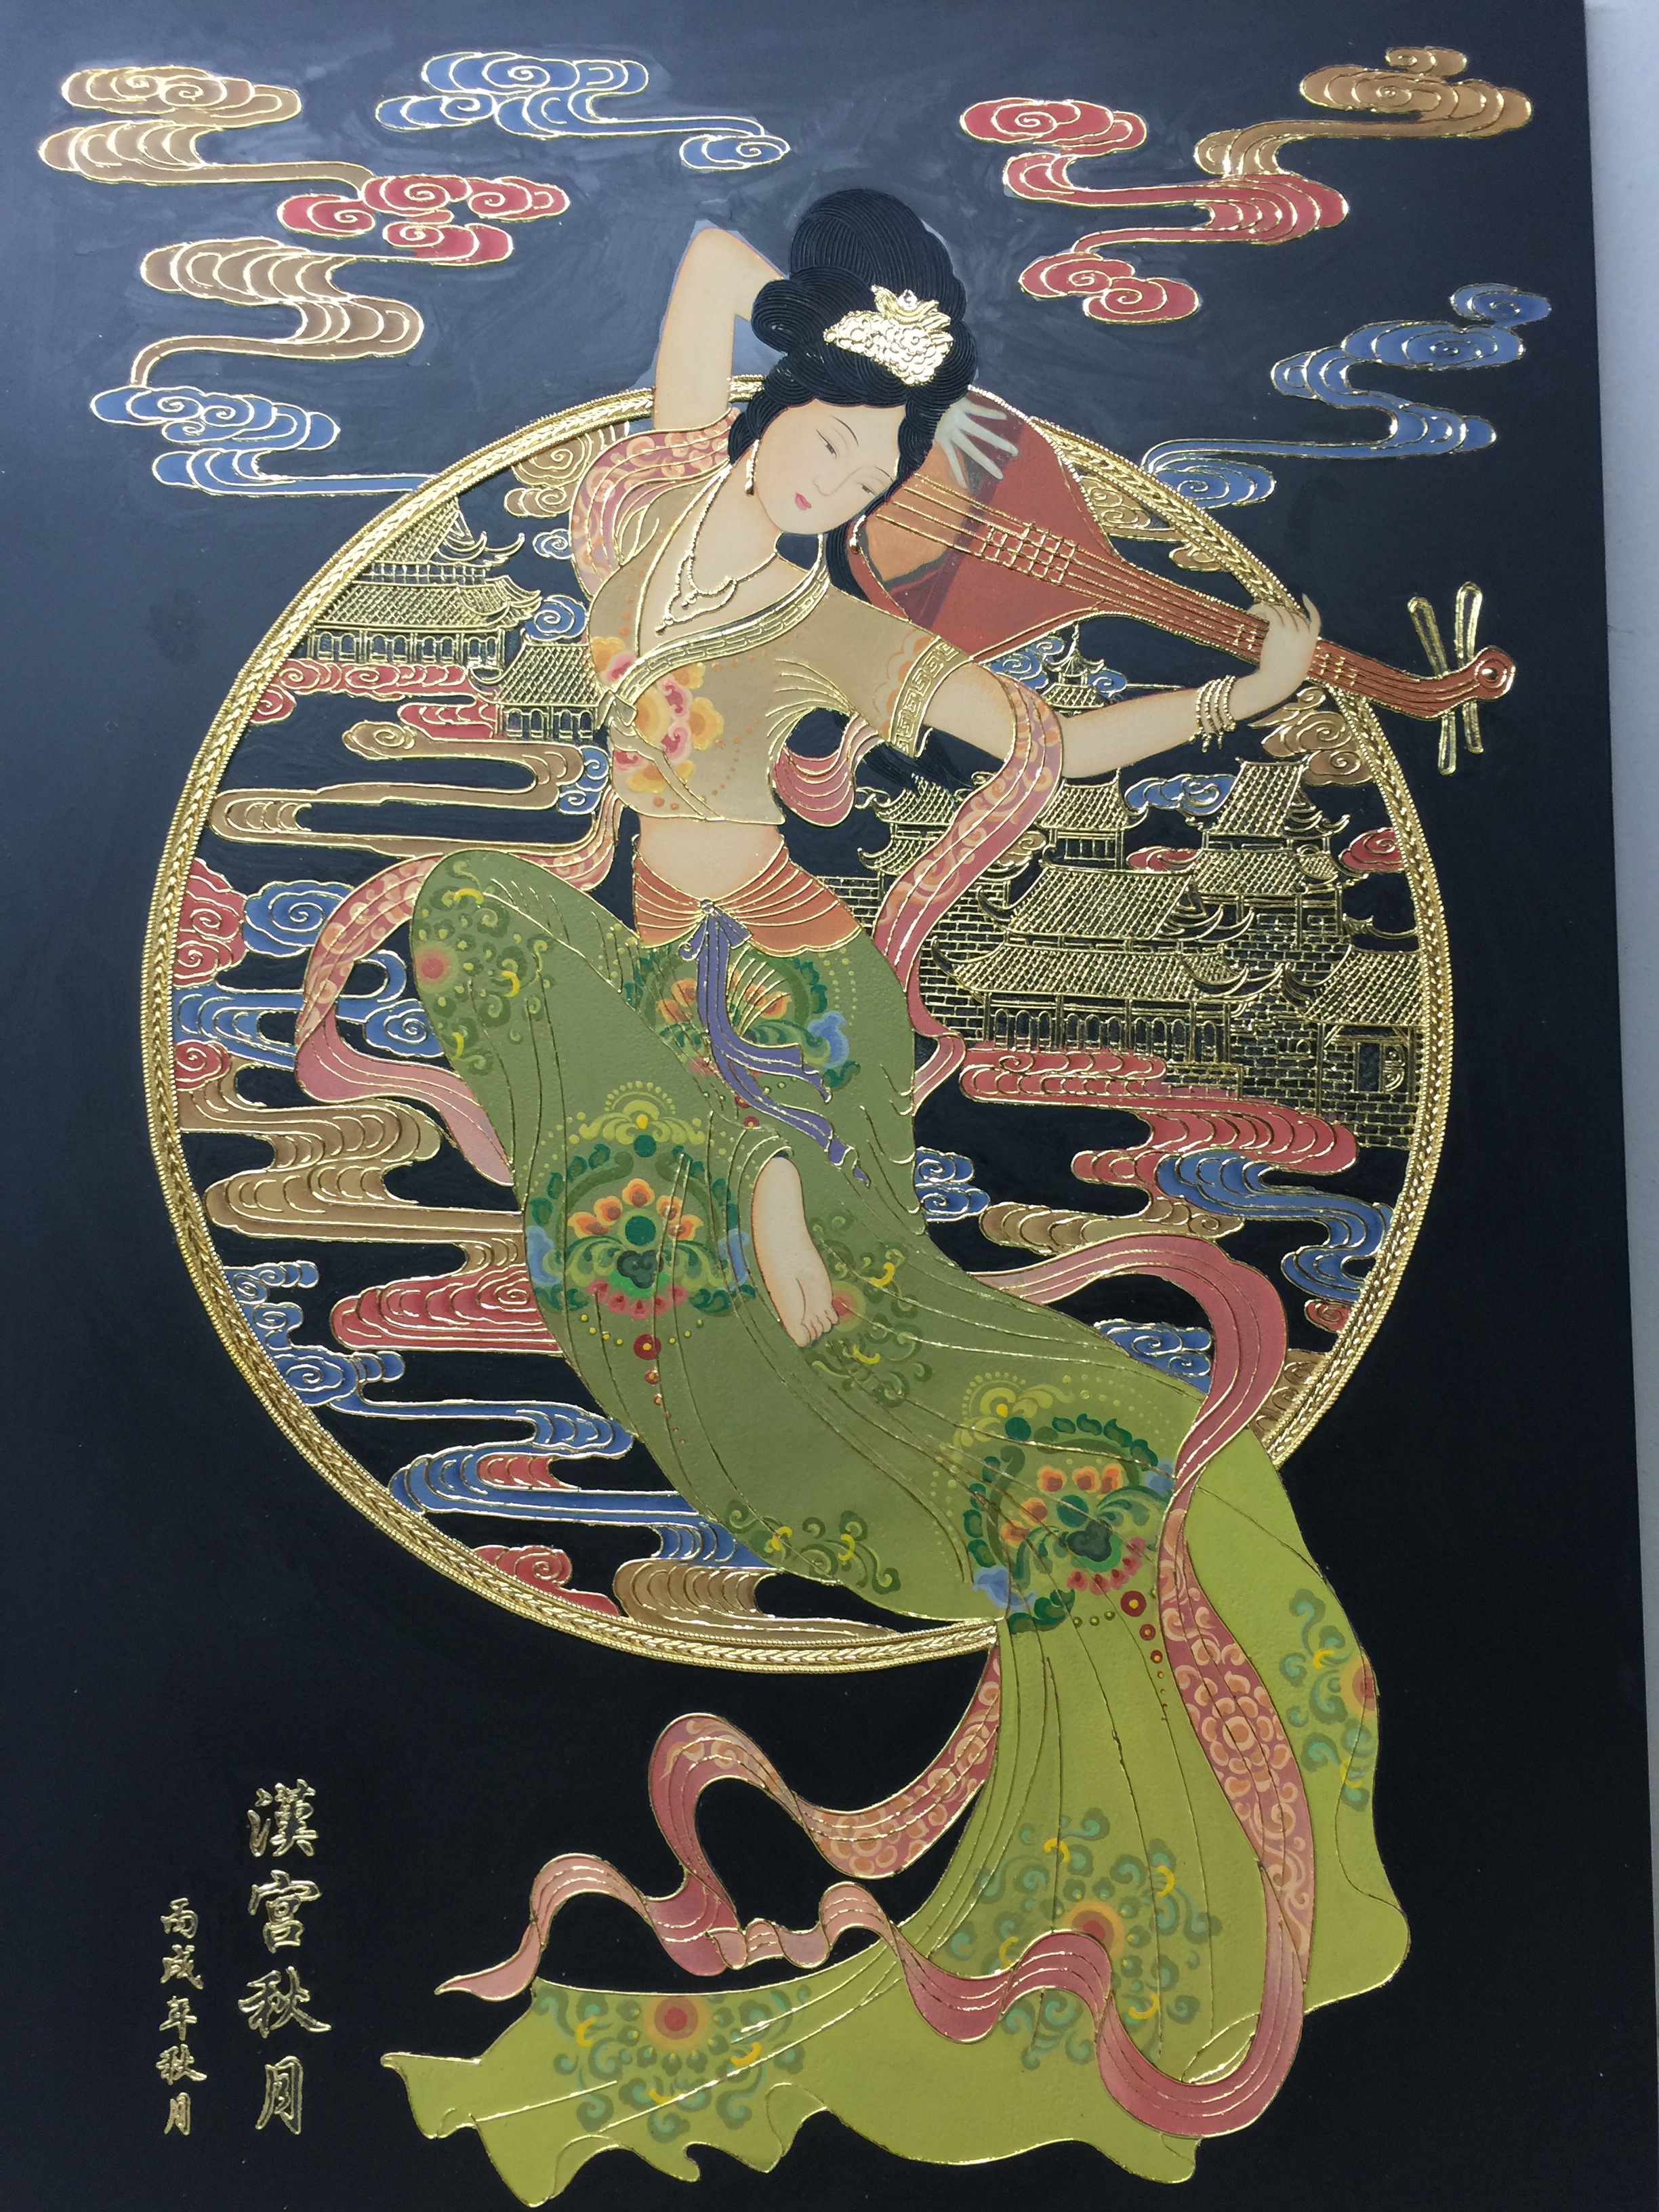 漢宮秋月
丙戌年秋月